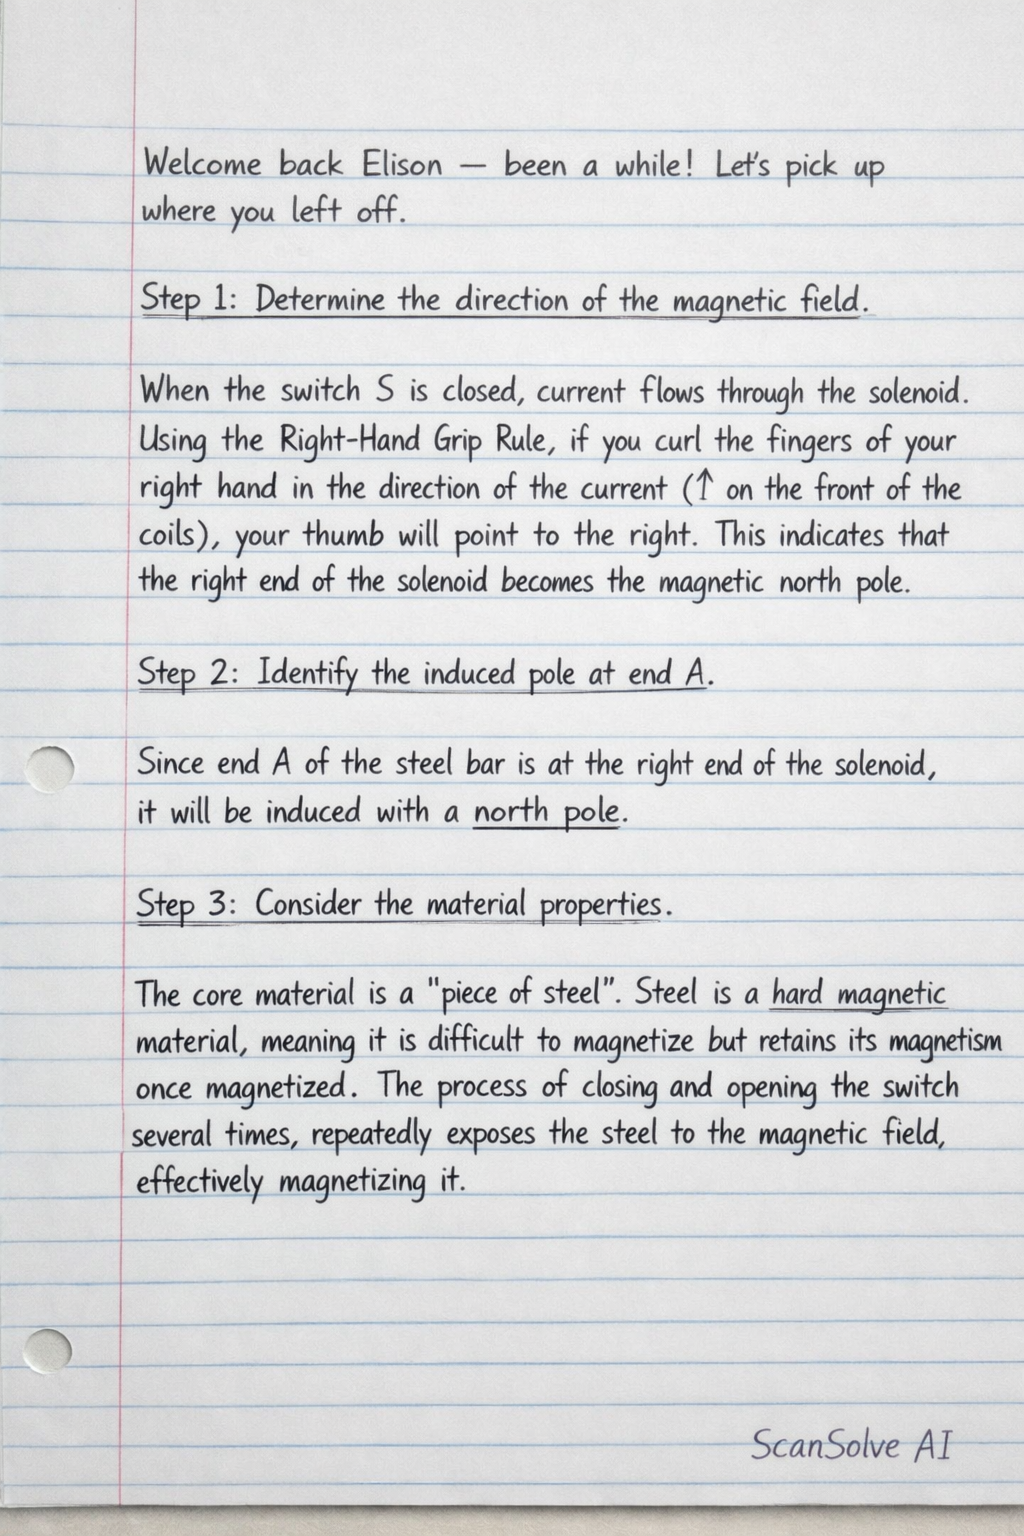 Welcome back Elison — been a while! Let's pick up
where you left off.
Step 1: Determine the direction of the magnetic field.
When the switch S is closed, current flows through the solenoid.
Using the Right-Hand Grip Rule, if you curl the fingers of your
right hand in the direction of the current (↑ on the front of the
coils), your thumb will point to the right. This indicates that
the right end of the solenoid becomes the magnetic north pole.
Step 2: Identify the induced pole at end A.
Since end A of the steel bar is at the right end of the solenoid,
it will be induced with a north pole.
Step 3: Consider the material properties.
The core material is a "piece of steel". Steel is a hard magnetic
material, meaning it is difficult to magnetize but retains its magnetism
once magnetized. The process of closing and opening the switch
several times, repeatedly exposes the steel to the magnetic field,
effectively magnetizing it.
ScanSolve AI